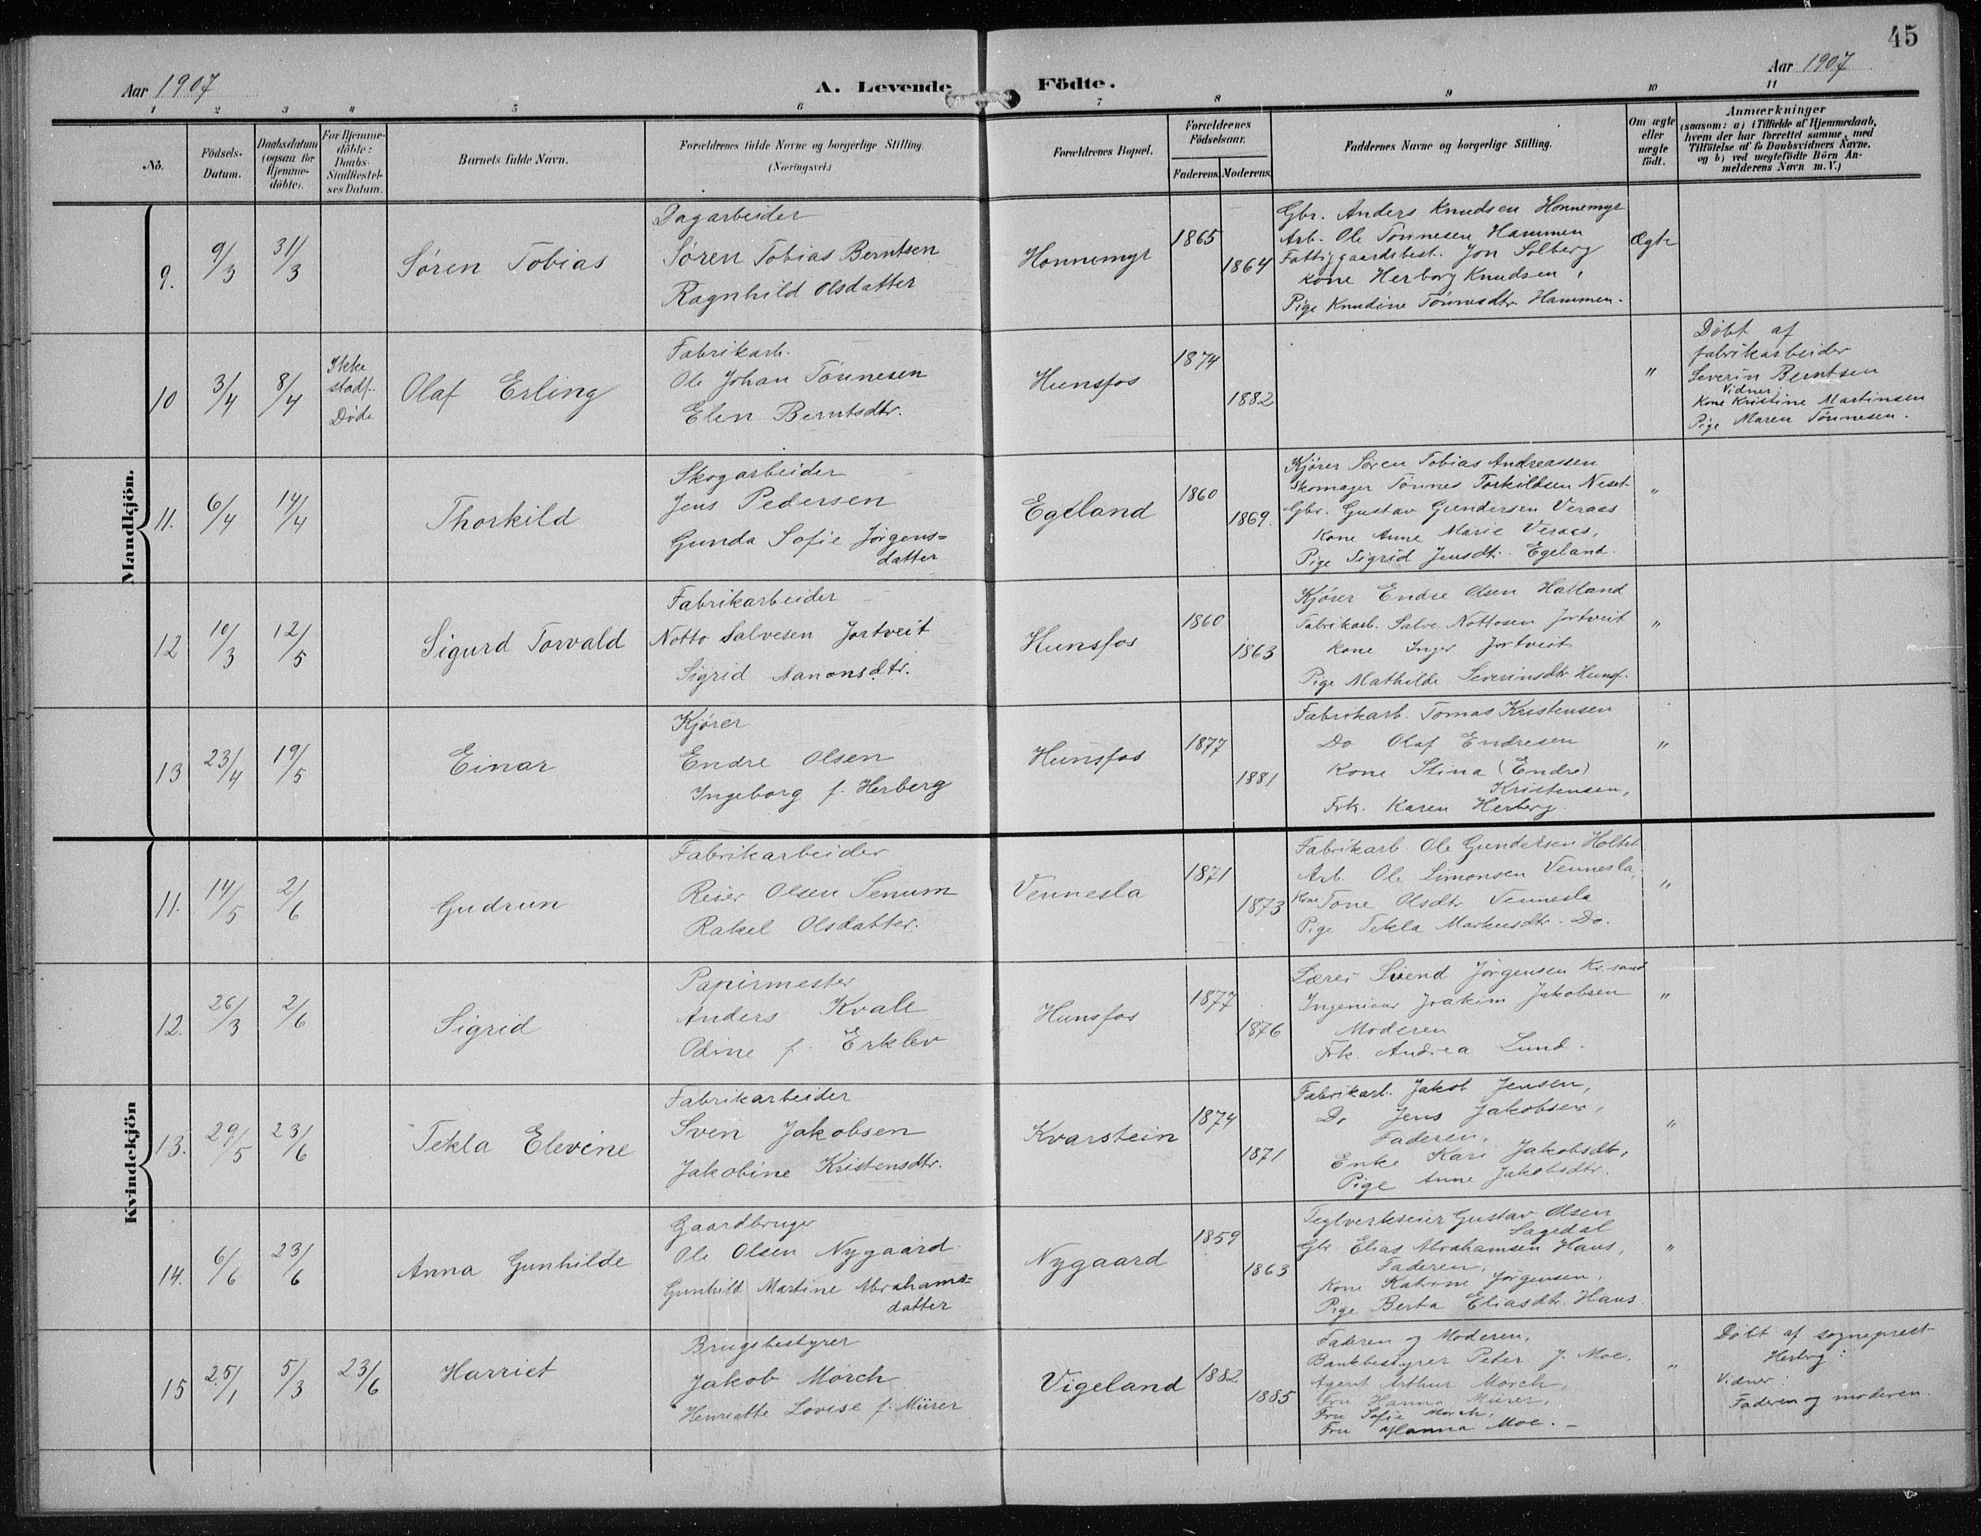 45
Aar 1907
A. Levende Födte.
Aar 1907
1 2 3 4 5 6 7 8 9 10 11
No.
Födsels-Datum.
Daabsdatum (ogsaa for Hjemme-döbte).
For Hjemme-döbte: Daabs-Stadfæstelses Datum.
Barnets fulde Navn.
Forældrenes fulde Navne og borgerlige Stilling. (Næringsvei.)
Forældrenes Bopæl.
Forældrenes Födselsaar.
Faderens. Moderens.
Faddernes Navne og borgerlige Stilling.
Om ægte eller uægte födt.
Anmærkninger
(saasom: a) i Tilfælde af Hjemmedaab, hvem der har forrettet samme, med Tilföielse af to Daabsvidners Navne, og b) ved uægtefödte Börn Anmelderens Navn m. V.)
Mandkjön.
9. 9/3 31/3 Søren Tobias
Dagarbeider
Søren Tobias Berntsen
Ragnhild Olsdatter
Honnemyr 1865 1864
Gbr. Anders Knudsen Honnemyr
Arb. Ole Tønnesen Hammen
Fattiggaardsbest. Jon Solberg
Kone Herborg Knudsen,
Pige Knudine Tønnesdtr. Hammen.
Ægte
10 3/4 8/4 Ikke stadf. Døde
Olaf Erling
Fabrikarb.
Ole Johan Tønnesen
Elen Berntsdtr.
Hunsfos 1874 1882
"
Døbt af
fabrikarbeider
Severin Berntsen
Vidner:
Kone Kristine Martinsen
Pige Maren Tønnesen.
11. 6/4 14/4 Thorkild
Skogarbeider
Jens Pedersen
Gunda Sofie Jørgens-
datter
Egeland 1860 1869.
Kjører Søren Tobias Andreassen
Skomager Tønnes Torkildsen Neset
Gbr. Gustav Gundersen Veraas
Kone Anne Marie Veraas,
Pige Sigrid Jensdtr. Egeland.
"
12 10/3 12/5 Sigurd Torvald
Fabrikarbeider
Notto Salvesen Jortveit
Sigrid Aanonsdtr.
Hunsfos 1860 1863
Kjører Endre Olsen Hatland
Fabrikarb. Salve Nottosen Jortveit
Kone Inger Jortveit
Pige Mathilde Severinsdtr Hunsf.
"
13 23/4 19/5 Einar
Kjører
Endre Olsen
Ingeborg f. Herberg
Hunsfos 1877 1881
Fabrikarb. Tomas Kristensen
Do Olaf Endresen
Kone Stina (Endre)
Kristensen,
Frk. Karen Herberg.
"
Kvindekjön
11. 14/5 2/6 Gudrun
Fabrikarbeider
Reier Olsen Senum
Rakel Olsdatter.
Vennesla 1871 1873
Fabrikarb Ole Gundersen Holtet
Arb. Ole Simonsen Vennesla,
Kone Tone Olsdtr Vennesla
Pige Tekla Markusdtr. Do.
"
12. 26/3 2/6 Sigrid
Papirmester
Anders Kvale
Odine f. Erklev
Hunsfos 1877 1876
Svend Jørgensen Kr.sand
Ingeniour Joakim Jakobsen
Moderen
Frk. Andrea Lund.
"
13. 29/5 23/6 Tekla Elevine
Fabrikarbeider
Sven Jakobsen
Jakobine Kristensdtr.
Kvarstein 1874 1871
Fabrikarb. Jakob Jensen,
Do Jens Jakobsen,
Faderen,
Enke Kari Jakobsdtr,
Pige Anne Jakobsdtr.
"
14. 6/6 23/6 Anna Gunhilde
Gaardbruger
Ole Olsen Nygaard
Gunhild Martine Abrahams-
datter
Nygaard 1859 1863
Teglverkseier Gustav Olsen
Sagedal
Gbr Elias Abrahamsen Haus,
Faderen,
Kone Katrine Jørgensen,
Pige Berta Eliasdtr. Haus.
"
15 25/1 5/3 23/6 Harriet
Brugsbestyrer
Jakob Mörch
Henriette Lovise f. Mürer
Vigeland 1882 1885
Faderen og Moderen,
Bankbestyrer Peter J. Moe.
Agent Arthur Mörch,
Fru Hanna Mürer,
Fru Sofie Mörch,
Fru Hanna Moe. –
"
Døbt af sogneprest
Herberg:
Vidner:
Faderen og moderen.